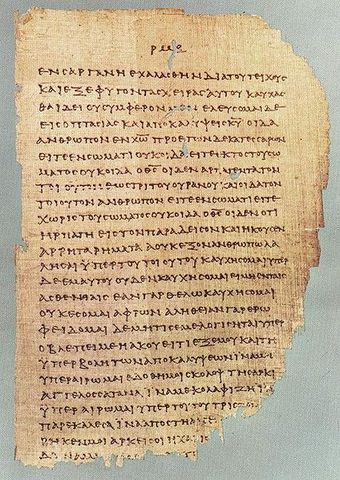 ΕΝ ϹΑΡΓΑΝΗ ΕΧΑΛΑϹΘΗΝ ΔΙΑ ΤΟΥ ΤΕΙΧΟΥϹ
ΚΑΙ ΕΞΕΦΥΓΟΝ ΤΑϹ ΧΕΙΡΑϹ ΑΥΤΟΥ ΚΑΥΧΑϹ
ΘΑΙ ΔΕΙ ΟΥ ϹΥΜΦΕΡΟΝ ΜΕΝ ΕΛΕΥϹΟΜΑΙ ΔΕ
ΕΙϹ ΟΠΤΑϹΙΑϹ ΚΑΙ ΑΠΟΚΑΛΥΨΕΙϹ ΚΥ ΟΙΔΑ
ΑΝΘΡΩΠΟΝ ΕΝ ΧΡΩ ΠΡΟ ΕΤΩΝ ΔΕΚΑΤΕϹϹΑΡΩΝ
ΕΙΤΕ ΕΝ ϹΩΜΑΤΙ ΟΥΚ ΟΙΔΑ ΕΙΤΕ ΕΚΤΟϹ ΤΟΥ ϹΩ
ΜΑΤΟϹ ΟΥΚ ΟΙΔΑ Ο ΘϹ ΟΙΔΕΝ ΑΡΠΑΓΕΝΤΑ ΤΟΝ
ΤΟΙΟΥΤΟΝ ΕΩϹ ΤΡΙΤΟΥ ΟΥΡΑΝΟΥ ΚΑΙ ΟΙΔΑ ΤΟΝ
ΤΟΙΟΥΤΟΝ ΑΝΘΡΩΠΟΝ ΕΙΤΕ ΕΝ ϹΩΜΑΤΙ ΕΙΤΕ
ΧΩΡΙϹ ΤΟΥ ϹΩΜΑΤΟϹ ΟΥΚ ΟΙΔΑ Ο ΘϹ ΟΙΔΕΝ ΟΤΙ
ΗΡΠΑΓΗ ΕΙϹ ΤΟΝ ΠΑΡΑΔΕΙϹΟΝ ΚΑΙ ΗΚΟΥϹΕΝ
ΑΡΡΗΤΑ ΡΗΜΑΤΑ Α ΟΥΚ ΕΞΟΝ ΑΝΘΡΩΠΩ ΛΑ
ΛΗϹΑΙ ΥΠΕΡ ΤΟΥ ΤΟΙΟΥΤΟΥ ΚΑΥΧΗϹΟΜΑΙ ΥΠΕΡ
ΔΕ ΕΜΑΥΤΟΥ ΟΥΔΕΝ ΚΑΥΧΗϹΟΜΑΙ ΕΙ ΜΗ ΕΝ ΤΑΙϹ
ΑϹΘΕΝΕΙΑΙϹ ΕΑΝ ΓΑΡ ΘΕΛΩ ΚΑΥΧΗϹΟΜΑΙ
ΟΥΚ ΕϹΟΜΑΙ ΑΦΡΩΝ ΑΛΗΘΕΙΑΝ ΓΑΡ ΕΡΩ
ΦΕΙΔΟΜΑΙ ΔΕ ΜΗ ΤΙϹ ΕΜΕ ΛΟΓΙϹΗΤΑΙ ΥΠΕΡ
Ο ΒΛΕΠΕΙ ΜΕ Η ΑΚΟΥΕΙ ΤΙ ΕΞ ΕΜΟΥ ΚΑΙ ΤΗ
ΥΠΕΡΒΟΛΗ ΤΩΝ ΑΠΟΚΑΛΥΨΕΩΝ ΙΝΑ ΜΗ
ΥΠΕΡΑΙΡΩΜΑΙ ΕΔΟΘΗ ΜΟΙ ϹΚΟΛΟΨ ΤΗ ϹΑΡΚΙ
ΑΓΓΕΛΟϹ ϹΑΤΑΝΑ ΙΝΑ ΜΕ ΚΟΛΑΦΙΖΗ ΙΝΑ
ΥΠΕΡΑΙΡΩΜΑΙ ΥΠΕΡ ΤΟΥΤΟΥ ΤΡΙϹ ΤΟΝ
ΠΑΡΕΚΑΛΕϹΑ ΙΝΑ ΑΠΟϹΤΗ
ΡΗΚΕΝ ΜΟΙ ΑΡΚΕΙ ϹΟΙ Η ΧΑΡΙϹ